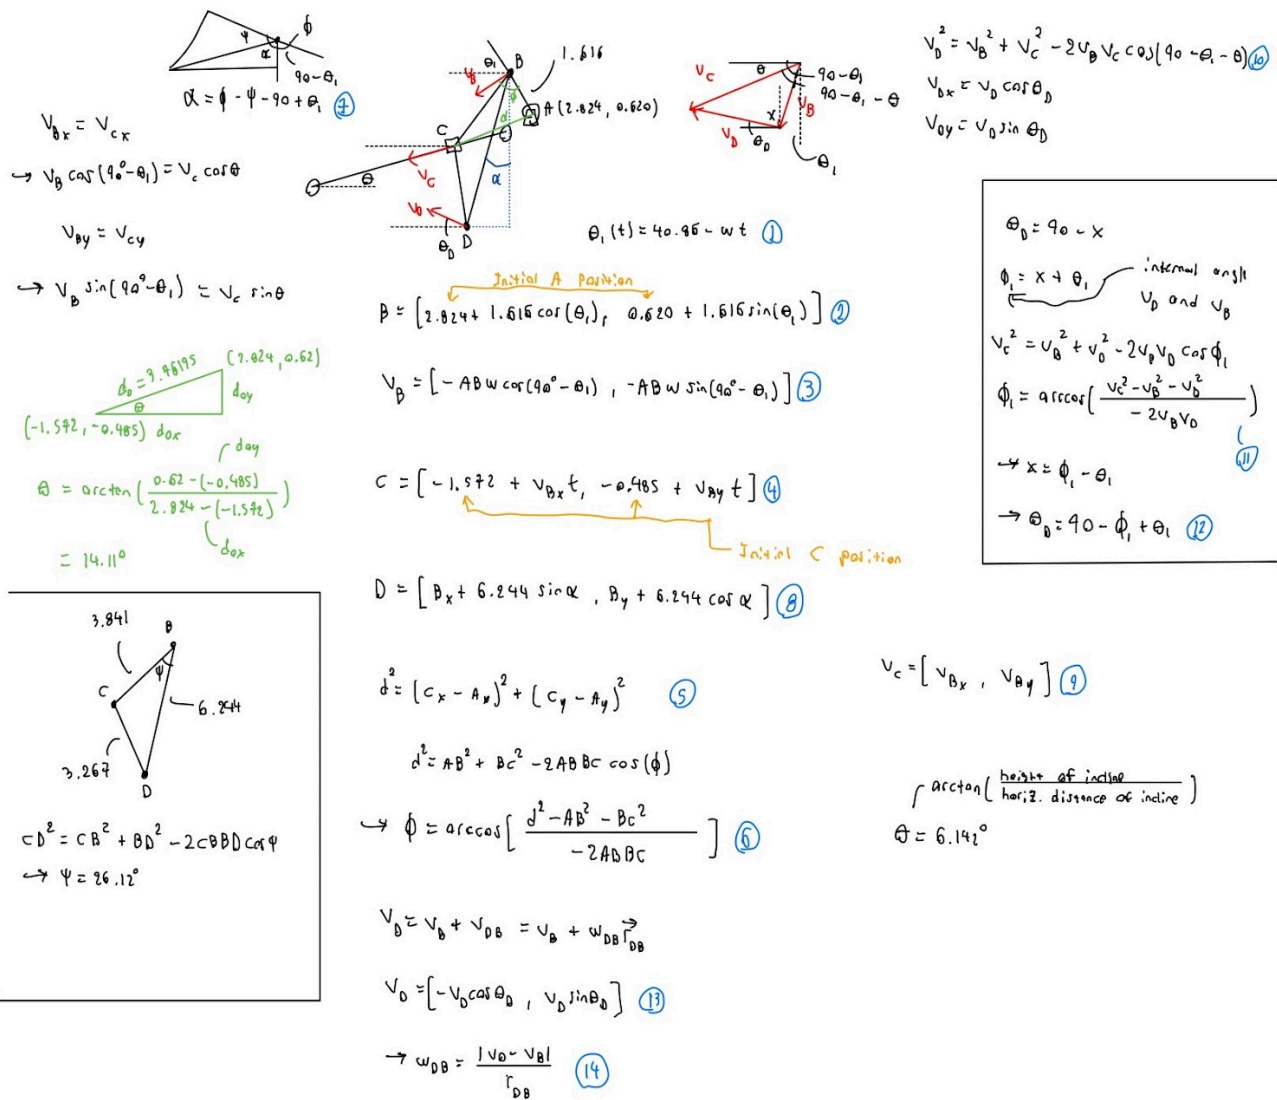 ψ
ϕ
α
90-θ₁
α = ϕ - ψ - 90 + θ₁ ⑦
V_Bx = V_cx
→ V_B cos(90°-θ₁) = V_c cosθ
V_By = V_cy
→ V_B sin(90°-θ₁) = V_c sinθ
d₀ = 3.96195
(2.824, 0.62)
θ
d_oy
(-1.572, -0.485) d_ox
d_oy
θ = arctan( (0.62-(-0.485)) / (2.824-(-1.572)) )
d_ox
= 14.11°
3.841
B
ψ
C
6.244
3.267
D
CD² = CB² + BD² - 2CBBD cosψ
→ ψ = 26.12°
θ₁
B
1.616
V_B
ϕ
d
A(2.824, 0.620)
C
θ
V_C
α
V_D
θ_D
D
θ₁(t) = 40.86 - wt ①
Initial A Position
B = [2.824 + 1.616cos(θ₁), 0.620 + 1.616sin(θ₁)] ②
V_B = [-ABw cos(90°-θ₁), -ABw sin(90°-θ₁)] ③
C = [-1.572 + V_Bx t, -0.485 + V_By t] ④
Initial C position
D = [B_x + 6.244 sinα, B_y + 6.244 cosα] ⑧
d² = (C_x - A_x)² + (C_y - A_y)² ⑤
d² = AB² + BC² - 2ABBC cos(ϕ)
→ ϕ = arccos[ (d² - AB² - BC²) / (-2ABBC) ] ⑥
V_D = V_B + V_DB = V_B + w_DB r⃗_DB
V_D = [-V_D cosθ_D, V_D sinθ_D] ⑬
→ w_DB = |V_D - V_B| / r_DB ⑭
V_C
θ
90-θ₁
90-θ₁-θ
V_B
x
V_D
θ_D
θ₁
V_D² = V_B² + V_C² - 2V_B V_C cos(90-θ₁-θ) ⑩
V_Dx = V_D cosθ_D
V_Dy = V_D sinθ_D
θ_D = 90 - x
ϕ₁ = x + θ₁
internal angle
V_D and V_B
V_C² = V_B² + V_D² - 2V_B V_D cosϕ₁
ϕ₁ = arccos( (V_C² - V_B² - V_D²) / (-2V_B V_D) )
⑪
→ x = ϕ₁ - θ₁
→ θ_D = 90 - ϕ₁ + θ₁ ⑫
V_C = [V_Bx, V_By] ⑨
arctan( height of incline / horiz. distance of incline )
θ = 6.142°